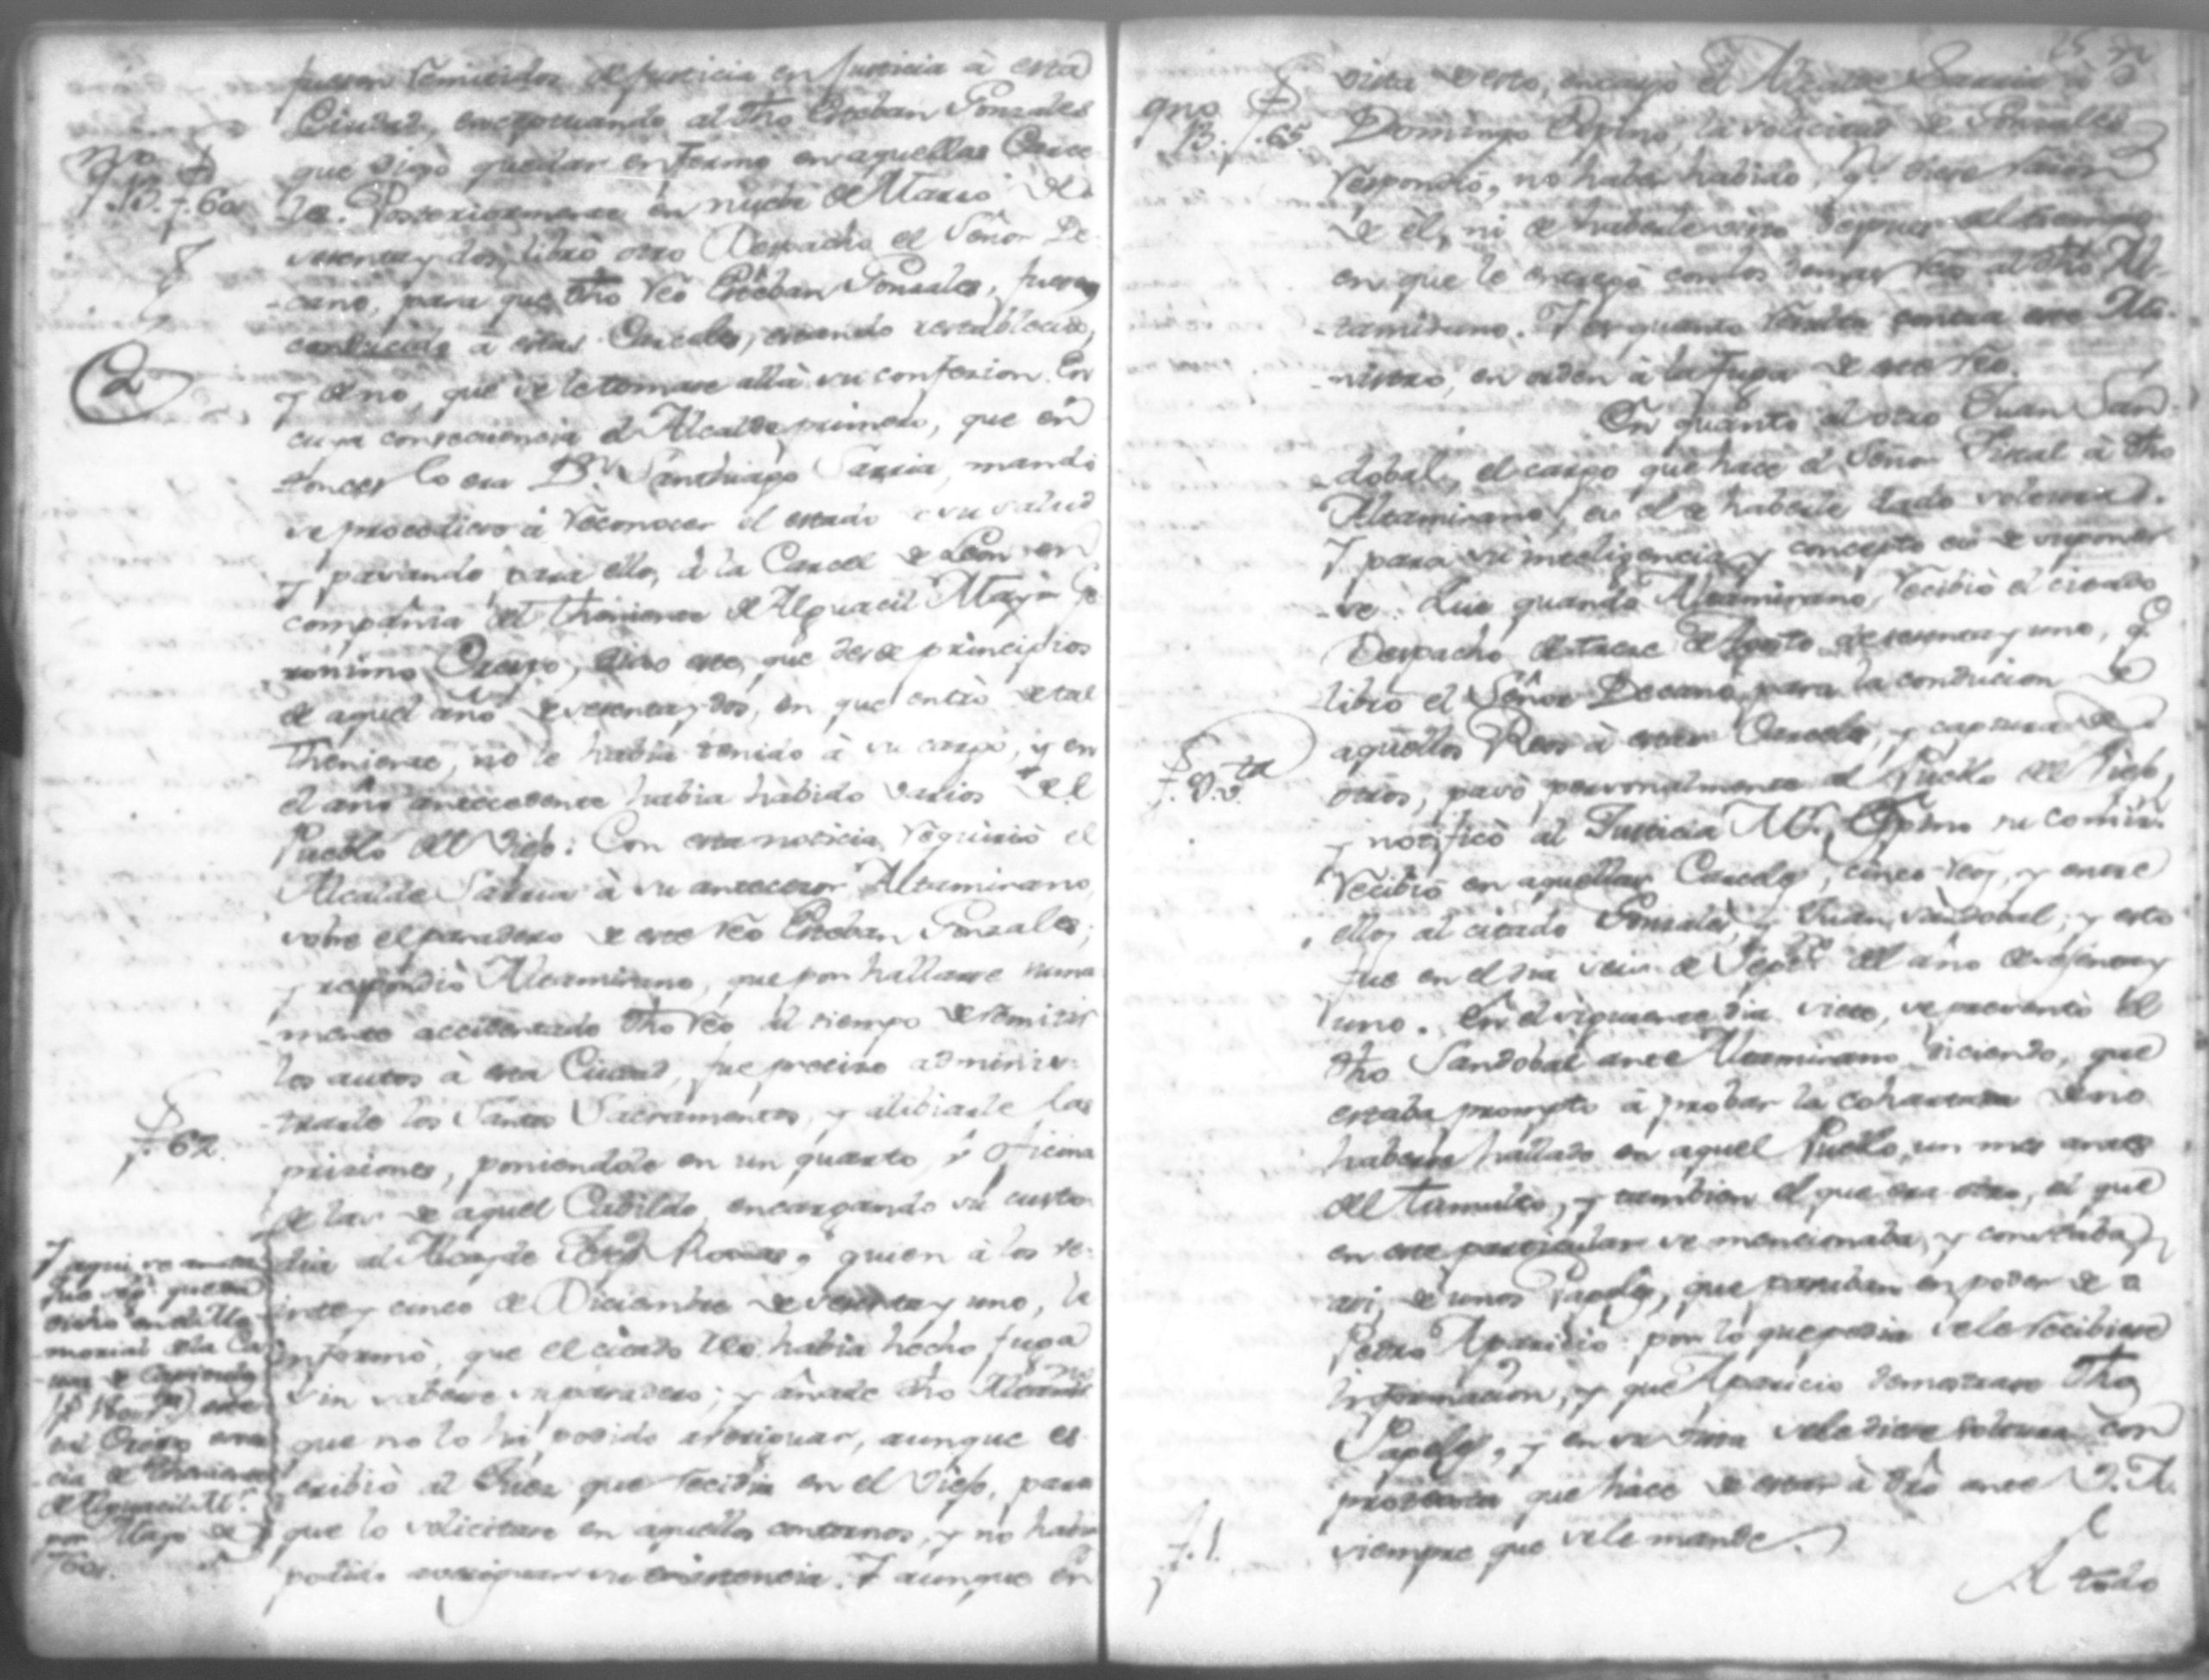 fueron remitidos de justicia en justicia à esta
Ciudad, exceptuando al dho Esteban Gonzales
que dejó quedar enfermo en aquellas Carce-
les. Posteriormente en nueve de Marzo de
sesenta y dos, libró otro Despacho el Señor De-
-cano, para que dho reo Esteban Gonzales, fuese
conducido à estas Carceles, estando restablecido,
y de no, que se le tomase allà su confesion. En
cuya consecuencia el Alcalde primero, que en-
tonces lo era Dn. Santhiago Sarria, mandó
se procediese à reconocer el estado de su salud
y pasando para ello, à la Carcel de Leon en
compañia del Theniente de Alguacil Mayor Ge-
ronimo Orozco, dixo este, que desde principios
de aquel año de sesenta y dos, en que entró de tal
Theniente, no le habia tenido à su cargo, y en
el año antecedente habia habido varios del
Pueblo del Viejo: Con esta noticia requirió el
Alcalde Sarria à su antecesor Altamirano,
sobre el paradero de este reo Esteban Gonzales;
y respondió Altamirano, que por hallarse suma-
mente accidentado dho reo, al tiempo de remitir
los autos à esta Ciudad, fue preciso adminis-
-trarle los Santos Sacramentos, y alibiarle las
prisiones, poniendole en un quarto, ù oficina
de las de aquel Cabildo, encargando su custo-
dia al Alcayde Roxas, quien à los ve-
inte y cinco de Diciembre de sesenta y uno, le
informó, que el citado reo habia hecho fuga
sin saberse su paradero; y añade dho Altamirno
que no lo ha podido averiguar, aunque es-
cribió al Juez que recidia en el Viejo, para
que lo solicitase en aquellos contornos, y no habia
podido averiguar su existencia. Y aunque en
f. 60
f. 62.
Y aqui se
que
dicho en el Me-
morial de la
este
tal Orozco era
Theniente
de Alguacil Mr.
por Mayo de
61.
25
vista de esto, encargó el Alcalde Sarria à
Domingo Espino, la solicitud de Gonzalez
respondió, no haber habido, q. diese razon
de èl, ni de haberle visto despues del tiempo
en que le entregó con los demas reos al dho Al-
-tamirano. Y es quanto resulta contra este Mi-
-nistro, en orden à la fuga de este reo.
En quanto al otro Juan San-
-dobal, el cargo que hace el Señor Fiscal à dho
Altamirano, es el de haberle dado soltura.
Y para su inteligencia y concepto es de suponer-
-se: Que quando Altamirano, recibió el citado
Despacho de trece de Agosto de sesenta y uno, q.
libró el Señor Decano, para la conducion de
aquellos Reos à estas Carceles, y captura de
otros, pasó personalmente al Pueblo del Viejo,
y notificó al Justicia Mr. Espino su comisn.
Recibió en aquellas Carceles, cinco reos, y entre
ellos al citado Gonzales, y Juan Sandobal; y esto
fue en el dia seis de Sepre. del año de sesenta y
uno. En el siguiente dia siete, se presentó el
dho Sandobal ante Altamirano diciendo, que
estaba prompto à probar la cohartada de no
haberse hallado en aquel Pueblo, un mes antes
del tumulto, y tambien el que era otro, el que
en este particular se mencionaba, y constaba,
asi, de unos Papeles, que paraban en poder de
Pedro Aparicio: por lo que pedia se le recibiese
informacion, y que Aparicio demostrase dhos
Papeles, y en su vista se le diese soltura con
protesta que hace de estar à dro ante V.A.
siempre que se le mande.
A todo
f. 65.
f. 1.